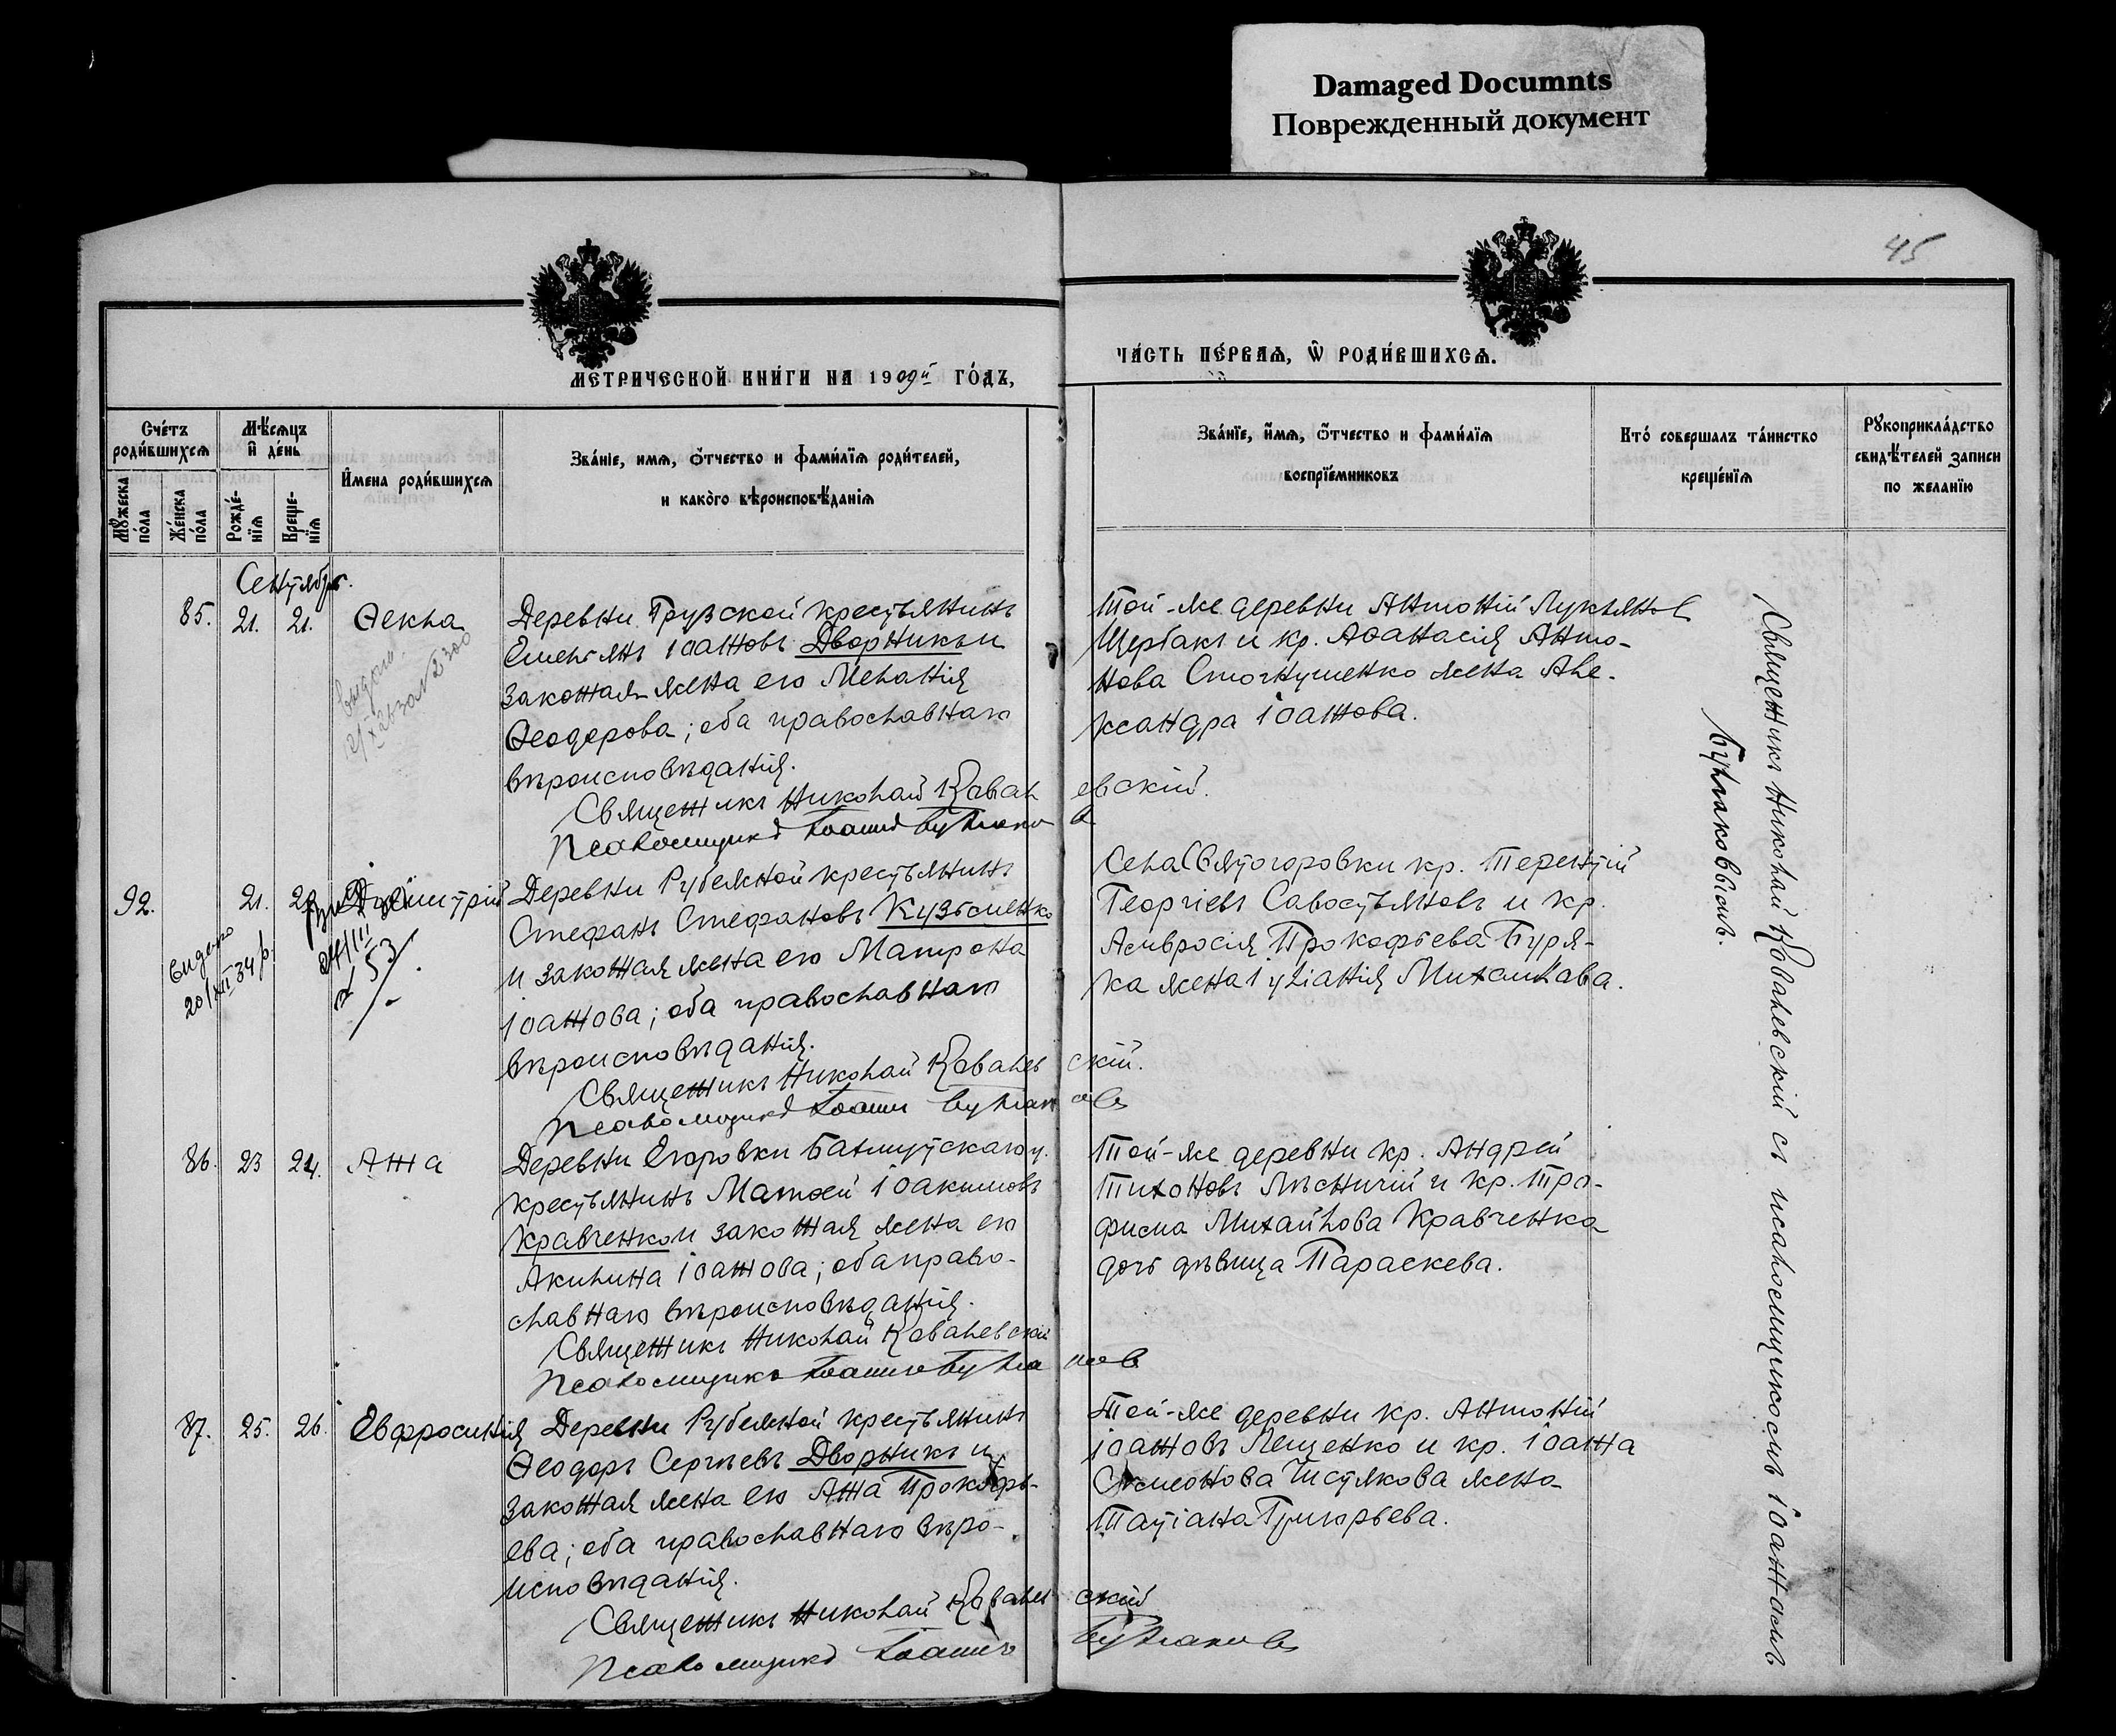 Damaged Documnts
Поврежденный документ
45
МЕТРИЧЕСКОЙ КНИГИ НА 1909й ГОДЪ,
ЧАСТЬ ПЕРВАЯ, Ѡ РОДИВШИХСЯ.
Счетъ родившихся
Мѣсяцъ и день
Мужеска пола
Женска пола
Рожденія
Крещенія
Имена родившихся
Званіе, имя, ѻтчество и фамилїя родителей,
и какого вѣроисповѣданія
Званїе, имя, ѻтчество и фамилїя
воспрїемниковъ
Кто совершалъ таинство
крещенїя
Рукоприкладство
свидѣтелей записи
по желанїю
Сентябрь.
85. 21. 21. Ѳекла
Деревни Грузской крестьянинъ
Емельянъ Іоанновъ Дворникъ и
законная жена его Меланія
Ѳеодорова; оба православнаго
вѣроисповѣданія.
Священникъ Николай Ковалевскій.
Псаломщикъ Іоаннъ Булгаковъ
Той-же деревни Антоній Лукьяновъ
Щербакъ и кр. Аѳанасія Анто-
нова жена Але-
ксандра Іоаннова.
92. 21. Димитрій
Видано
20/XII 34 р.
24/III
53
Деревни Рубежной крестьянинъ
Стефанъ Стефановъ Кузьменко
и законная жена его Матрона
Іоаннова; оба православнаго
вѣроисповѣданія.
Священникъ Николай Ковалевскій.
Псаломщикъ Іоаннъ Булгаковъ
Села Святогоровки кр. Терентій
Георгіевъ Савостьяновъ и кр.
Амвросія Прокофьева Буря-
ка жена Іуліанія Михайлова.
86. 23 24. Анна
Деревни Егоровки Бахмутскаго у.
крестьянинъ Матѳей Іоакимовъ
Кравченко и законная жена его
Акилина Іоаннова; оба право-
славнаго вѣроисповѣданія.
Священникъ Николай Ковалевскій
Псаломщикъ Іоаннъ Булгаковъ
Той-же деревни кр. Андрей
Тихоновъ Лѣсничій и кр. Тро-
фима Михайлова Кравченка
дочь дѣвица Параскева.
87. 25. 26. Евфросинія
Деревни Рубежной крестьянинъ
Ѳеодоръ Сергѣевъ Дворникъ и
законная жена его Анна Прокофь-
ева; оба православнаго вѣро-
исповѣданія.
Священникъ Николай Ковалевскій
Псаломщикъ Іоаннъ Булгаковъ
Той-же деревни кр. Антоній
Іоанновъ Лещенко и кр. Іоанна
Симеонова Чистякова жена
Татіана Григорьева.
Священникъ Николай Ковалевскій съ псаломщикомъ Іоанномъ
Булгаковымъ.